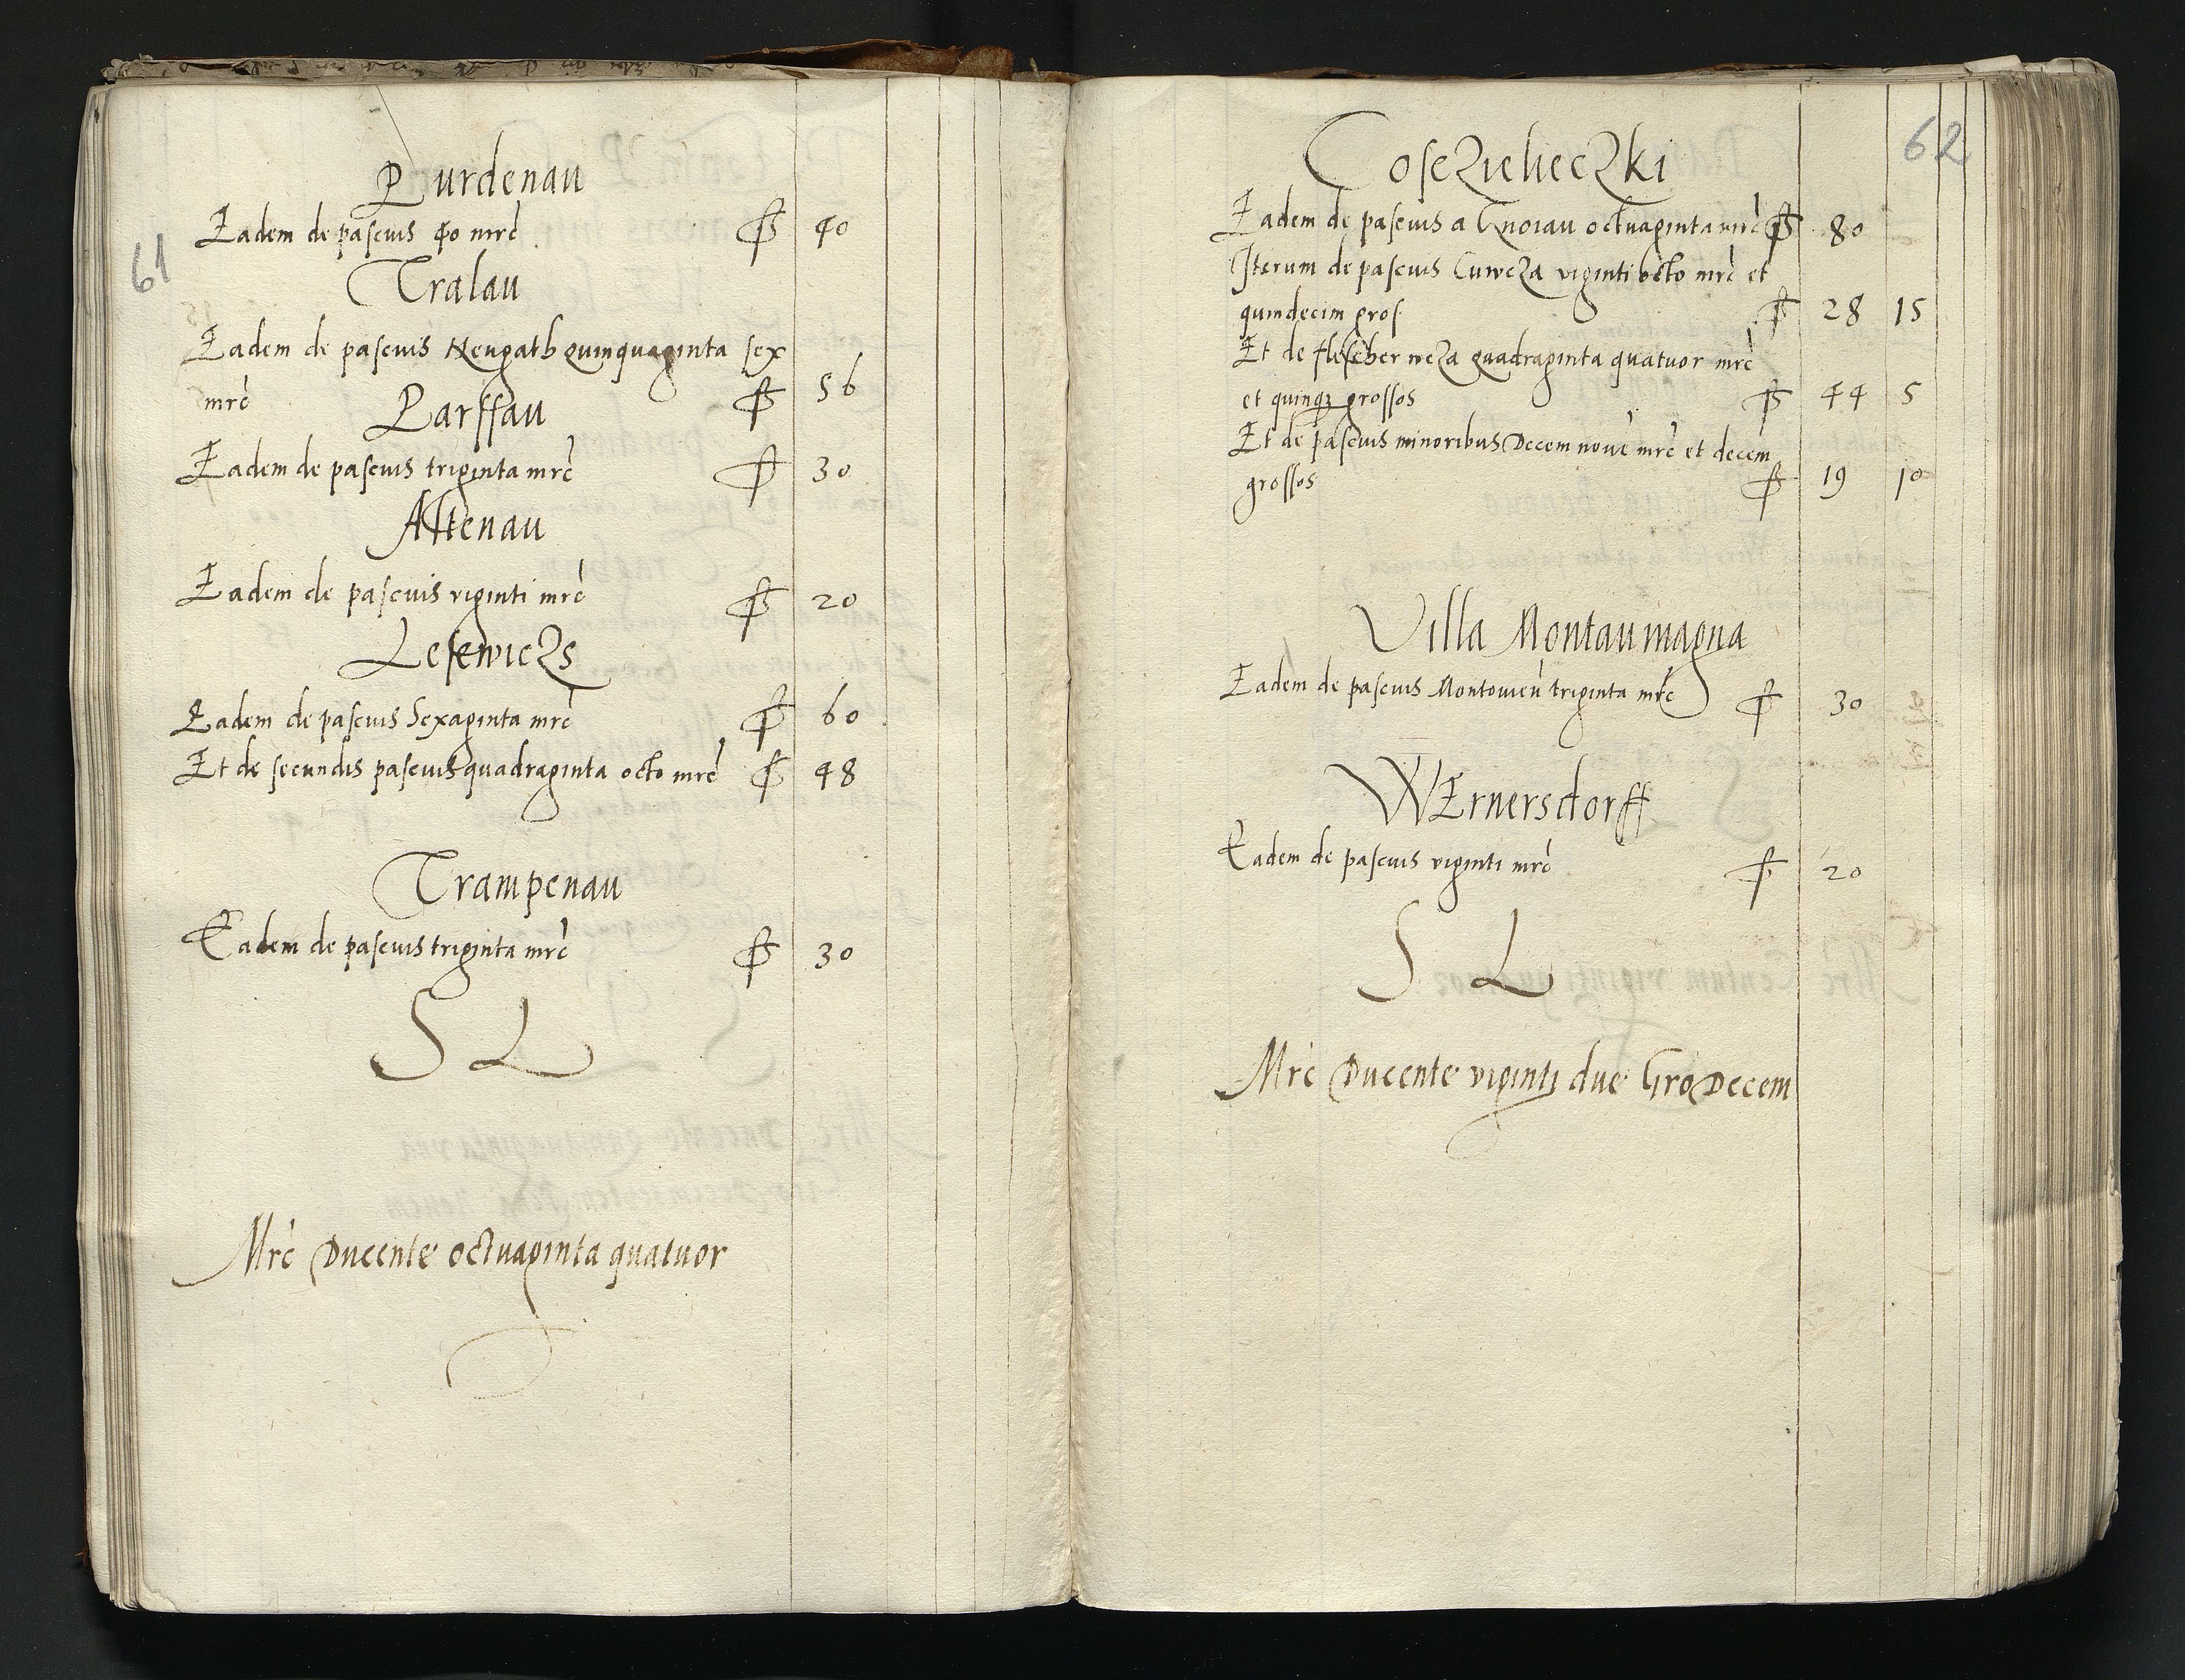 61
Purdenau
Eadem de pascuis 40 mrc 40
Tralau
Eadem de pascuis Neugath quinquaginta sex
mrc 56
Parssau
Eadem de pascuis triginta mrc 30
Altenau
Eadem de pascuis viginti mrc 20
Lesewiczs
Eadem de pascuis Sexaginta mrc 60
Et de secundis pascuis quadraginta octo mrc 48
Trampenau
Eadem de pascuis triginta mrc 30
S L
Mrc Ducente octuaginta quatuor
62
Eadem de pascuis a Cnoiau octuaginta mrc 80
Iterum de pascuis Cuwcza viginti octo mrc et
quindecim gros 28 15
Et de flescher wcza quadraginta quatuor mrc
et quinqz grossos 44 5
Et de pascuis minoribus Decem nove mrc et decem
grossos 19 10
Villa Montau magna
Eadem de pascuis triginta mrc 30
WErnersdorff
Eadem de pascuis viginti mrc 20
S L
Mrc Ducente viginti due Gro Decem